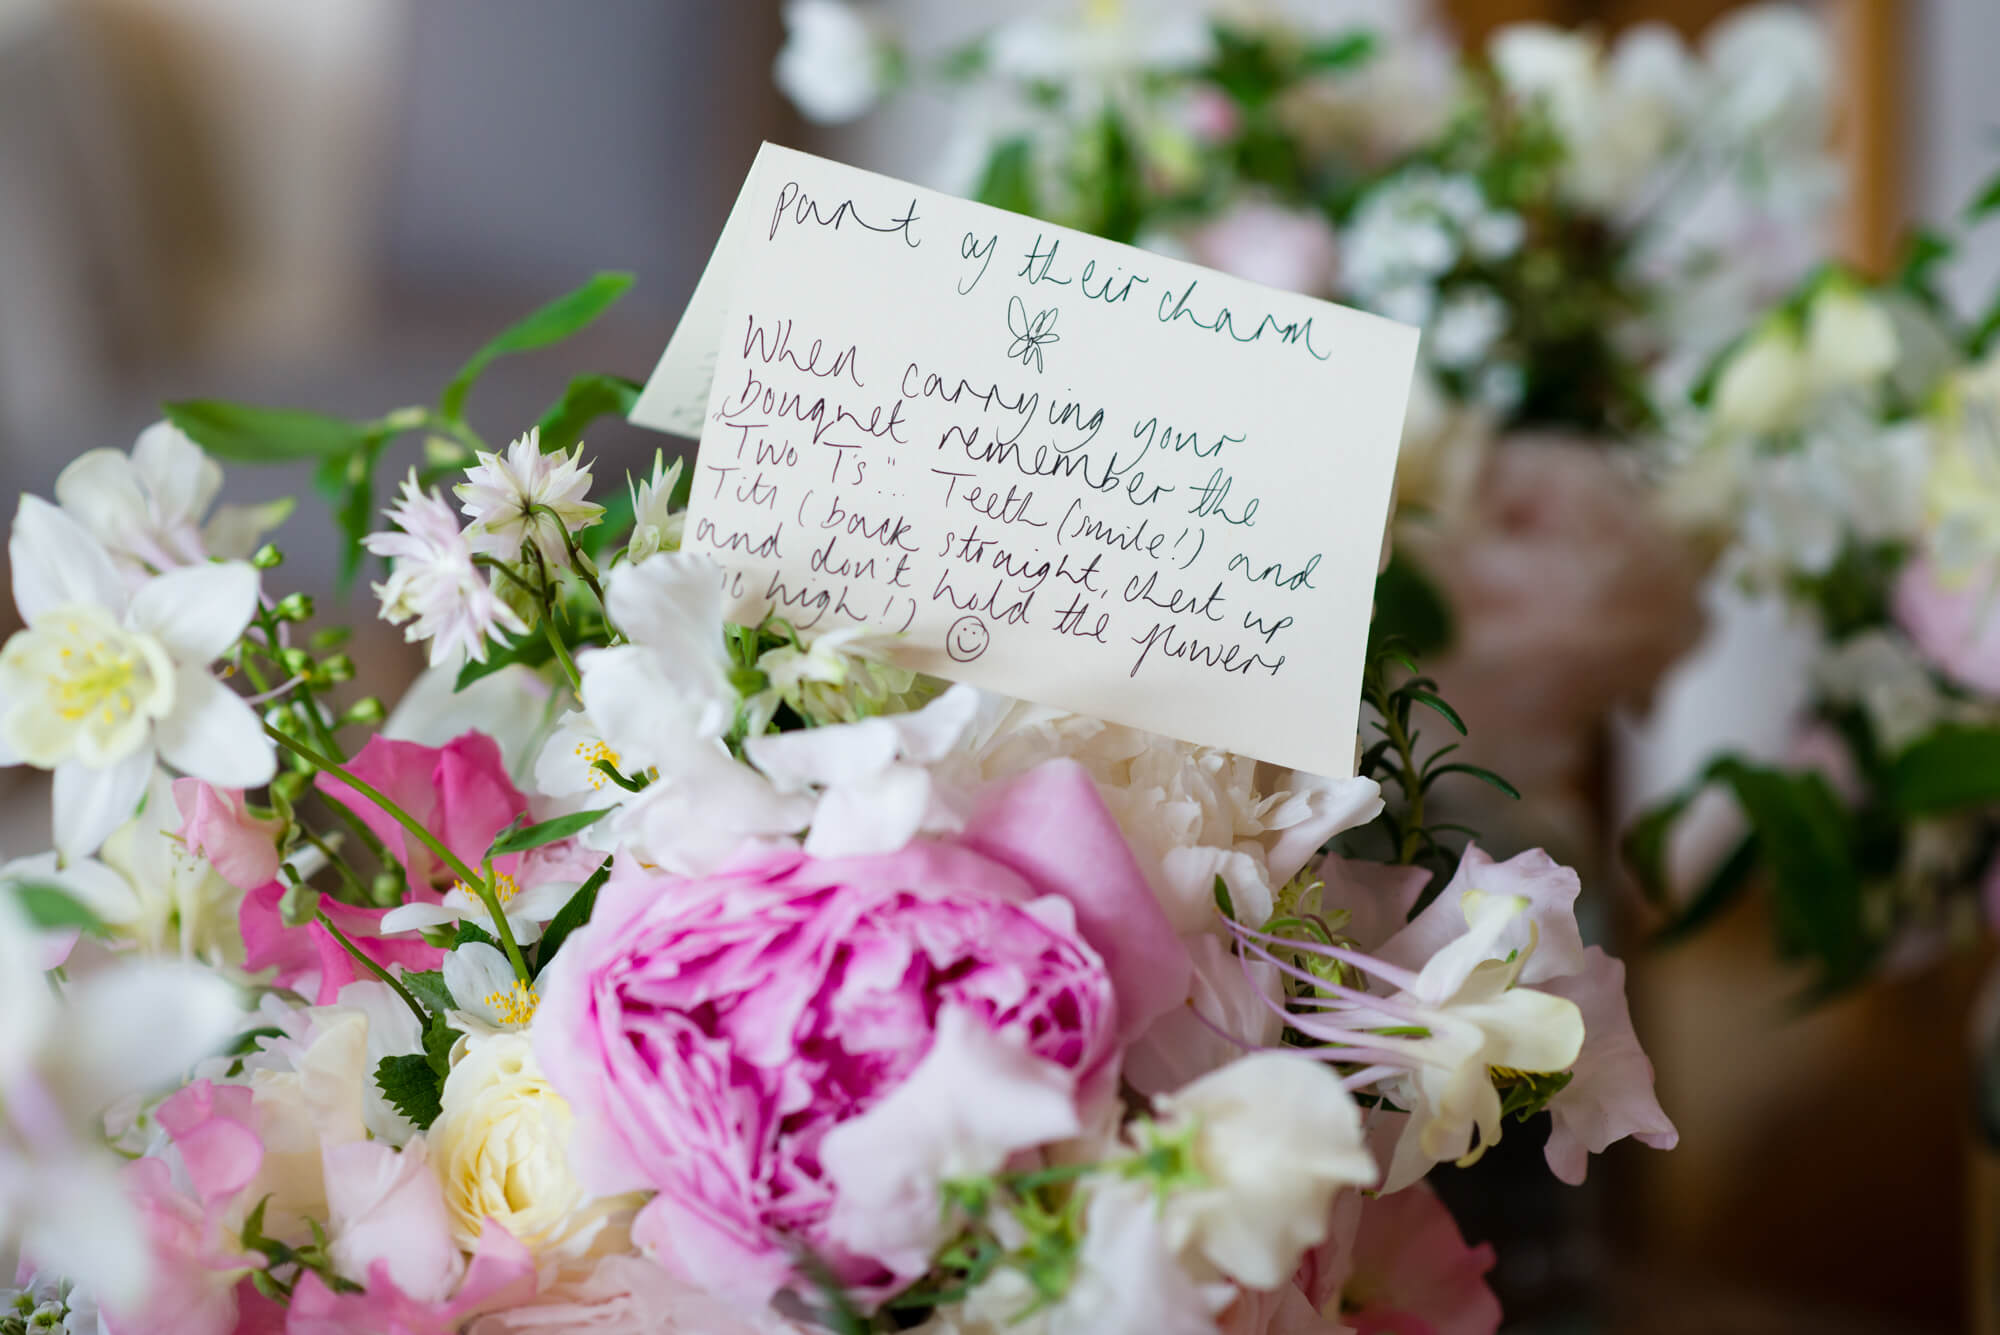 part of their charm
When carrying your
bouquet remember the
"Two T's"... Teeth (smile!) and
Tits (back straight, chest up
and don't hold the flowers
too high!)